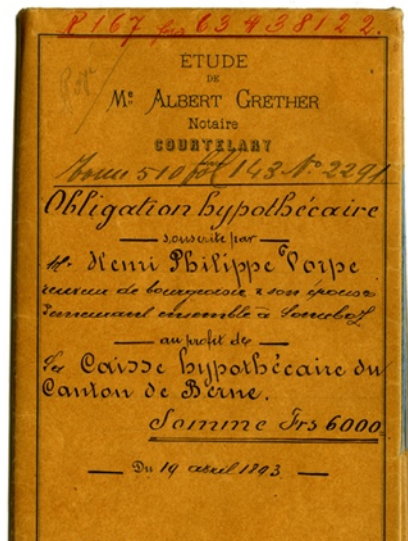 R 167 fos 63 438122.
Payé
ETUDE
DE
Me ALBERT GRETHER
Notaire
COURTELARY
Tome 510 fol 143 No 2291
Obligation hypothécaire
souscrite par
Mr Henri Philippe Vorpe
receveur de bourgeoisie & son épouse
demeurant ensemble à Sombeval
au profit de
La Caisse hypothécaire du
Canton de Berne.
Somme Frs 6000.
Du 19 avril 1893.